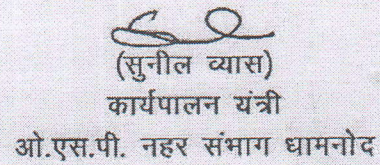 (सुनील व्यास)
कार्यपालन यंत्री
ओ.एस.पी. नहर संभाग धामनोद